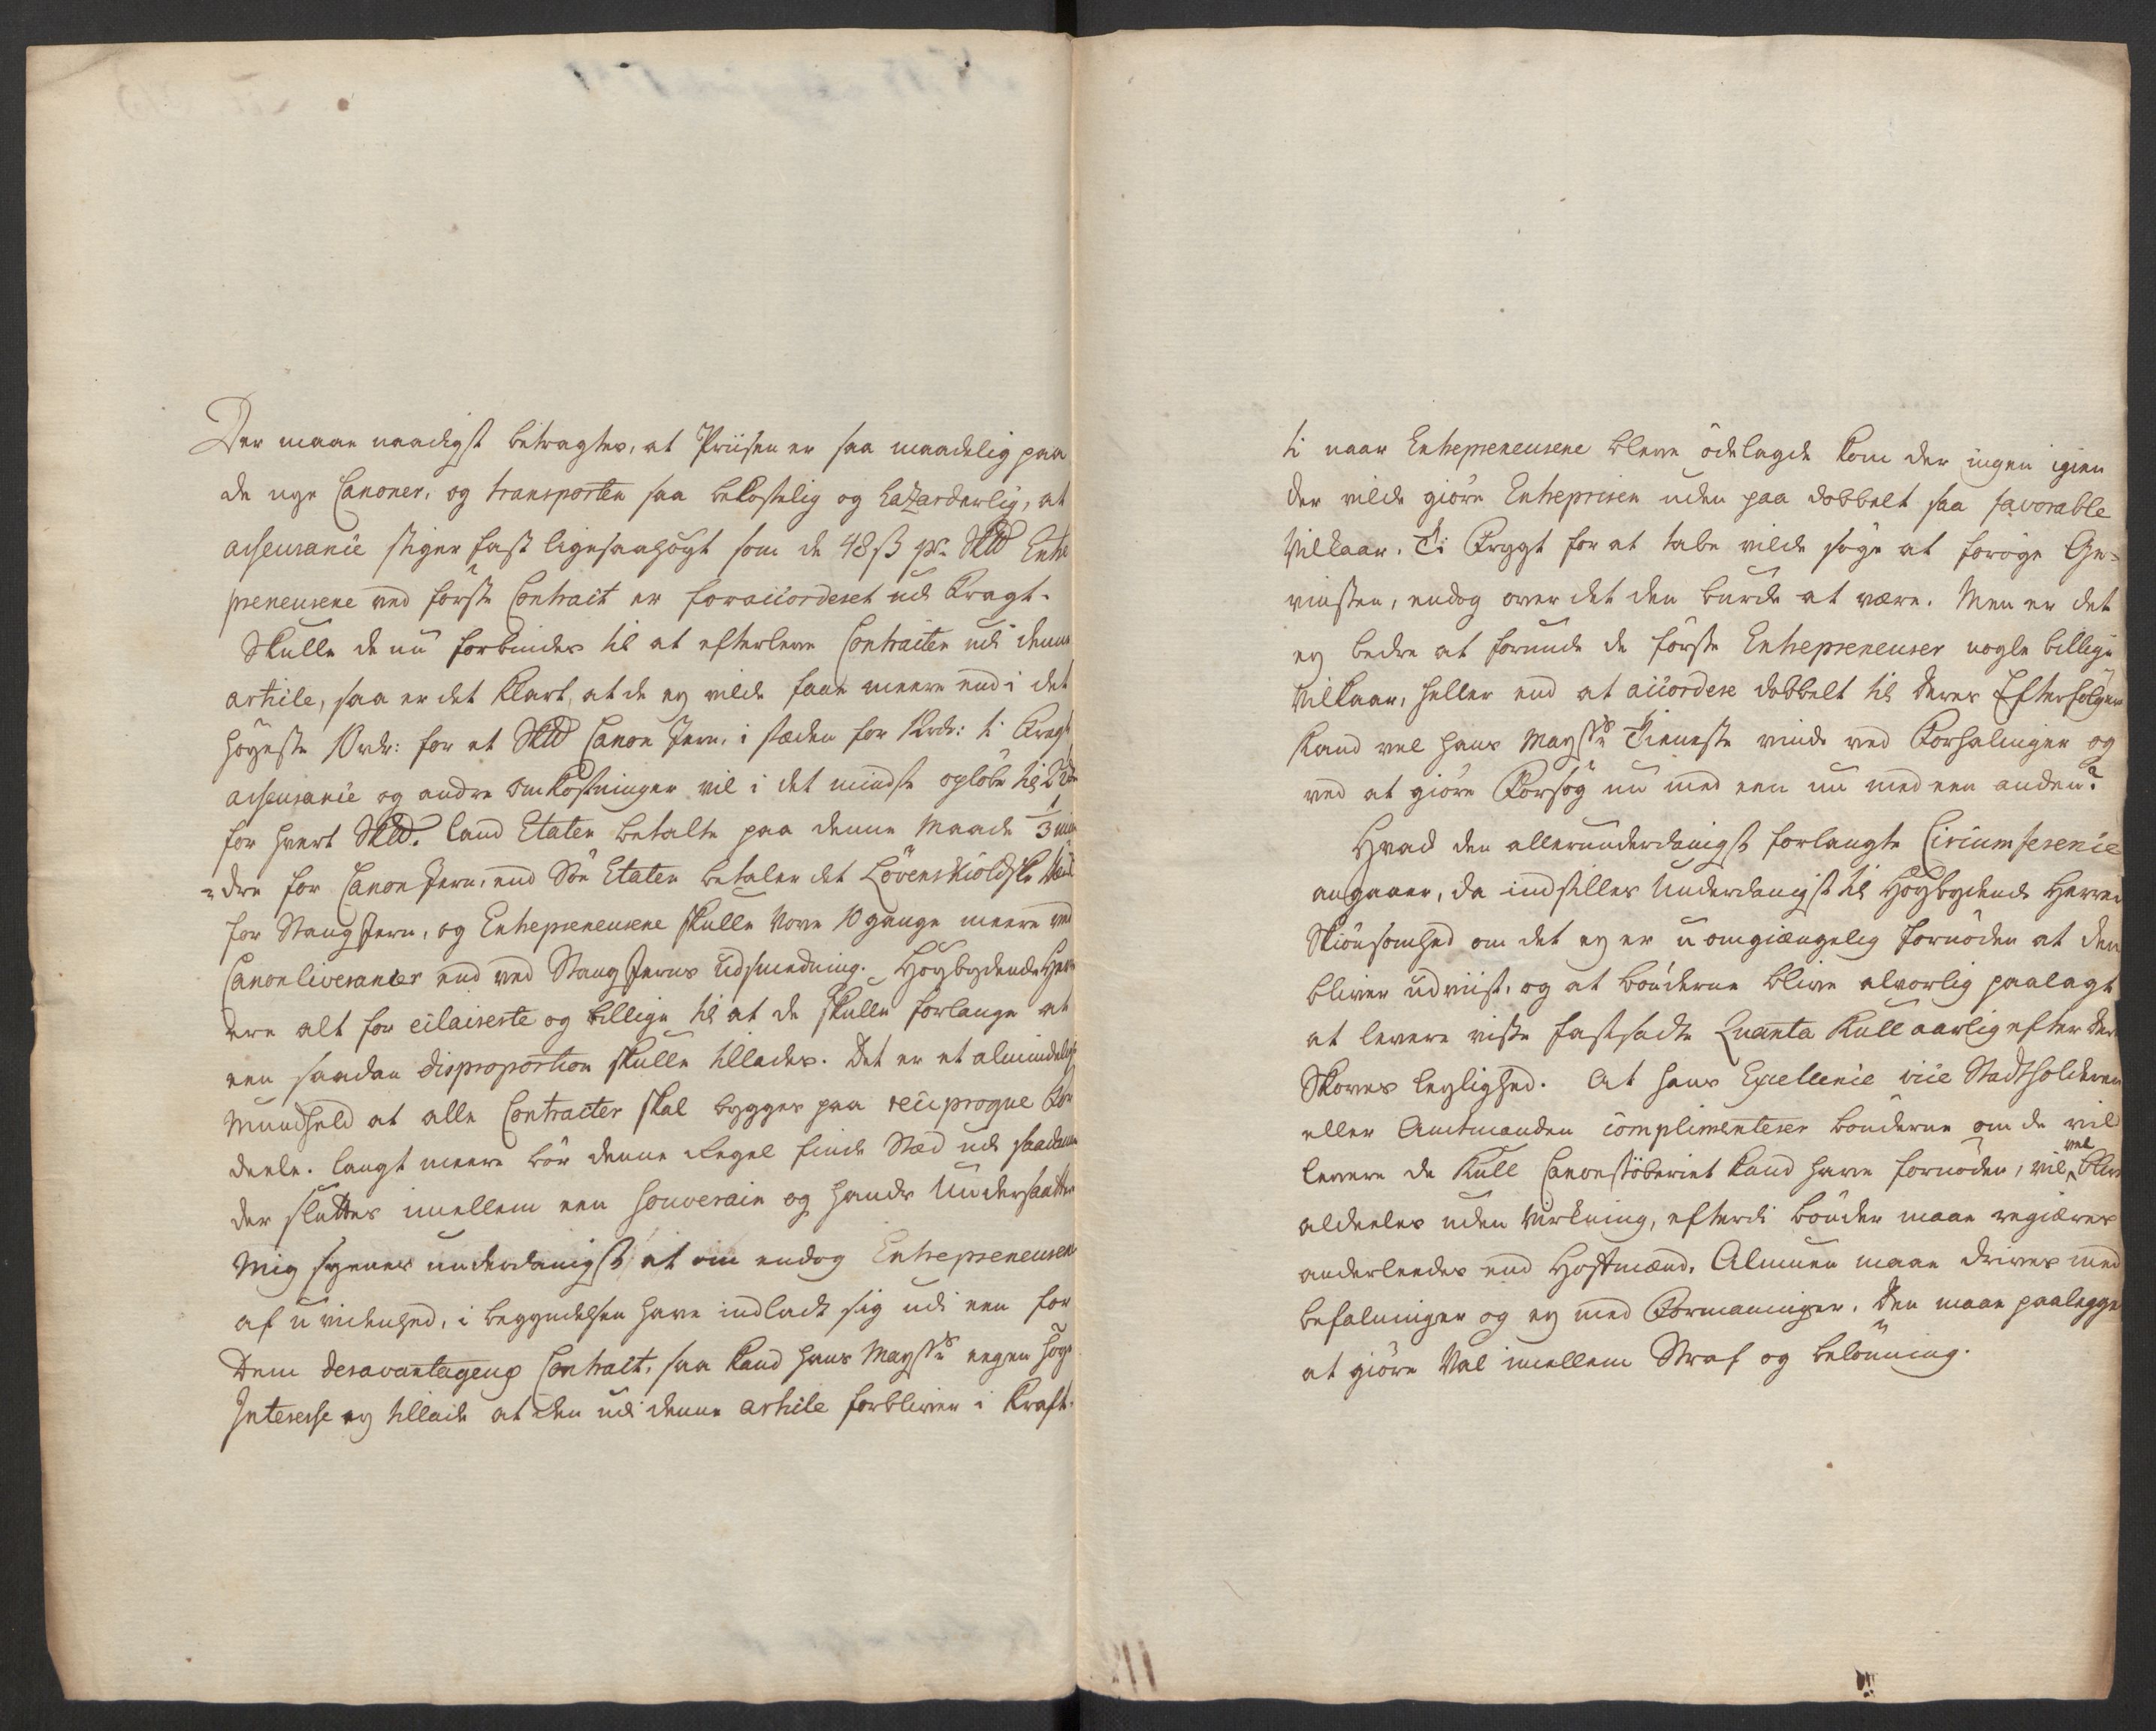 Der maae naadigst betragtes, at Priisen er saa maadelig paa
de nye Canoner, og transporten saa bekostelig og hazarderlig, at
asseurancie stiger fast ligesaahögt som de 48 ß pr. Sk℔ Entre
preneurene ved förste Contract er foraccorderet udi Fragt.
Skulle de nu forbindes til at efterleve Contracten udi denne
article, saa er det klart, at de ey vilde faae meere end i det
höyeste 10 rdr: for et Sk℔ Canon Jern, i stæden for 12 rdr: ti Fragt
asseurancie og andre omkostninger vil i det mindste oplöbe til 2 rdr
for hvert Sk℔. land Etaten betalte paa denne Maade 1/3 min
=dre for Canon Jern, end Söe Etaten betaler det Lövenskioldske
for Stang Jern, og Entrepreneurene skulle vove 10 gange meere ved
Canonliverancer end ved Stang Jerns udsmedning. Höybydende Her
ere alt for eclairerte og billige til at de skulle forlange at
een saadan disproportion skulle tillades. Det er et almindeligt
Mundheld at alle Contracter skal bygges paa reciproque For
deele. langt meere bör denne Regel finde Sted udi saadanne
der sluttes imellem een Souverain og hands Undersaatter
Mig synes underdanigst, at om endog Entrepreneurene
af u-videnhed, i begyndelsen have indladt sig udi een for
Dem desavantageux Contract, saa kand hans Maysts egen höye
Interesse ey tillade at den udi denne article forbliver i Kraft.
ti naar Entrepreneurene bleve ödelagde kom der ingen igien
der vilde giöre Entreprisen uden paa dobbelt saa favorable
Vilkaar. Ti Frygt for at tabe vilde söge at foröge Ge=
vinsten, endog over det den burde at være. Men er det
ey bedre at forunde de förste Entrepreneurer nogle billige
Vilkaar, heller end at accordere dobbelt til deres Efterfölgere
kand vel hans Maysts Tieneste vinde ved Forhalinger og
ved at giöre Forsög nu med een nu med een anden?
Hvad den allerunderdanigst forlangte Circumference
angaaer, da indstilles Underdanigst til Höybydende Herrer
Skiönsomhed om det ey er u omgiængelig fornöden at den
bliver udviist, og at bönderne blive alvorlig paalagt
at levere visse fastsadte Quanta Kull aarlig efter der
Skoves leylighed. At hans Excellence vice Stadtholderen
eller Amtmanden complimenterer bönderne om de vil
levere de Kull Canonstöberiet kand have fornöden, vil vel blive
aldeeles uden Virkning, efterdi bönder maae regiæres
anderleedes end Hoffmænd. Almuen maae drives med
befalninger og ey med Formaninger. Den maae paalegges
at giöre Val imellem Straf og belönning.